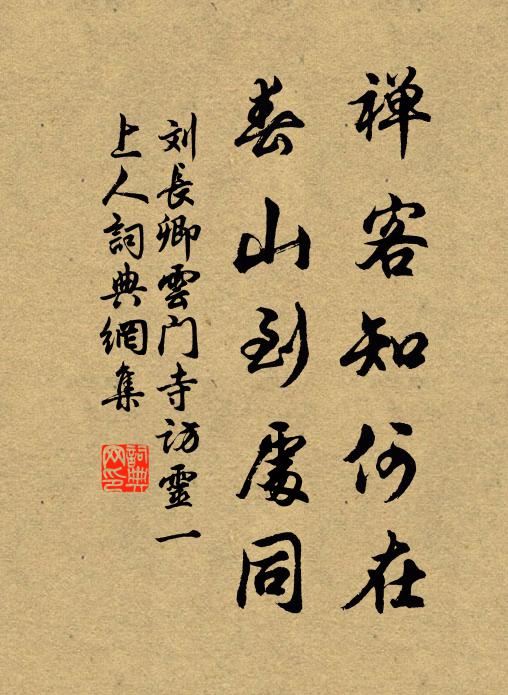 禅客知何在
春山到處同
刘長卿雲门寺访靈一
上人詞典網集
詞典网印